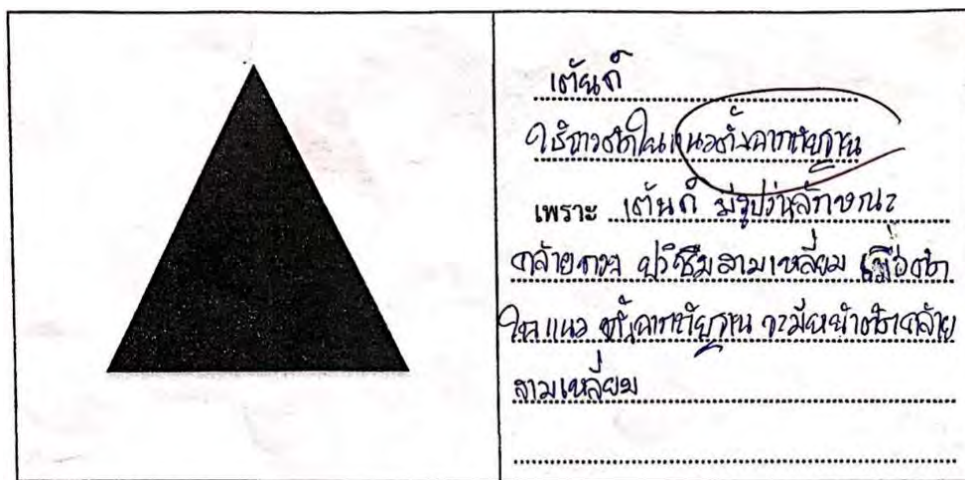 เต้นท์
ใช้การตัดในแนวตั้งฉากกับฐาน
เพราะ เต้นท์ มีรูปร่างลักษณะ
คล้ายกับ ปริซึมสามเหลี่ยม เมื่อตัด
ในแนว ตั้งฉากกับฐาน จะมีหน้าตัดคล้าย
สามเหลี่ยม